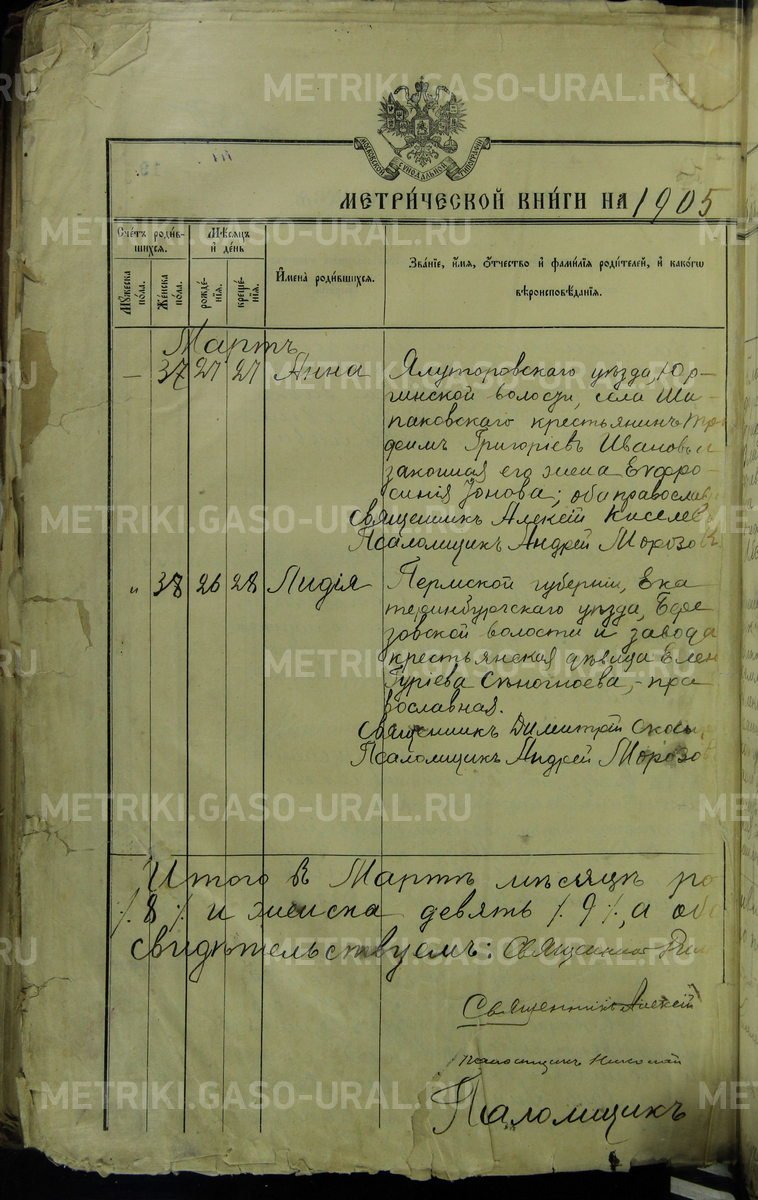 METRIKI.GASO-URAL.RU
МОСКОВСКОЙ СѴНОДАЛЬНОЙ ТИПОГРАФІИ
МЕТРИ́ЧЕСКОЙ КНИ́ГИ НА 1905
Счетъ роди́в-
шихся.
Мѣсяцъ
и день
Мꙋжеска
пола.
Женска
пола.
рожде́-
нія.
креще́-
нія.
Имена роди́вшихся.
Зва́ніе, и́мя, о́тчество и фами́лія роди́телей, и како́гѡ
вѣроисповѣ́данія.
Мартъ
— 37 27 27 Анна Ялуторовскаго уѣзда, Юр-
гинской волости, села Ши-
паковскаго крестьянинъ Тро
фимъ Григоріевъ Ивановъ и
законная его жена Евфро-
синія Іонова; оба православ
Священникъ Алексій Киселевъ
Псаломщикъ Андрей Морозовъ
" 38 26 28 Лидія Пермской губерніи, Ека
теринбургскаго уѣзда, Бере
зовской волости и завода
крестьянская дѣвица Елен
Гуріева Сѣногноева, - пра
вославная.
Священникъ Димитрій
Псаломщикъ Андрей Морозов
Итого въ Мартѣ мѣсяцѣ ро
/. 8 /. и женска девять /. 9 /., а обо
свидѣтельствуемъ: Священникъ Дим
Священникъ Алексій
Псаломщикъ Николай
Псаломщикъ